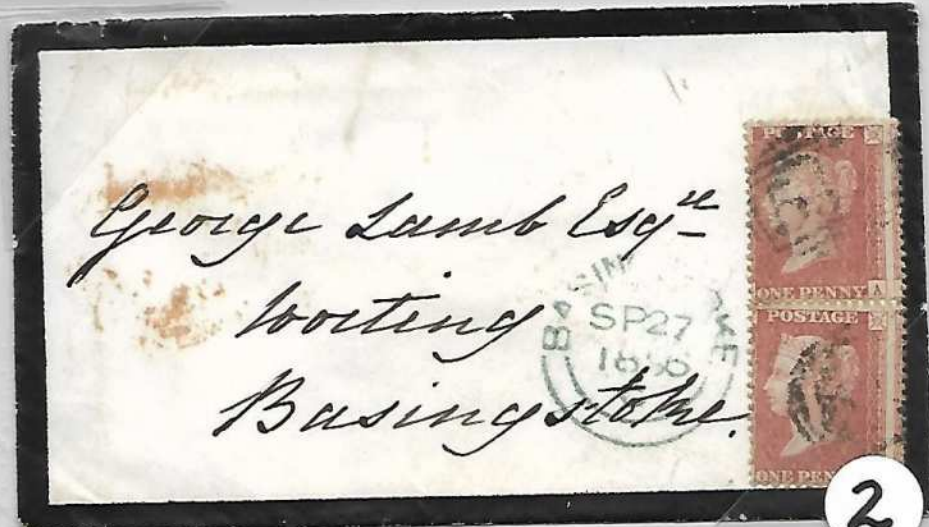 George Lamb Esqre
Worting
Basingstoke.
SP27
1856
POSTAGE
A
ONE PENNY
POSTAGE
ONE PEN
2